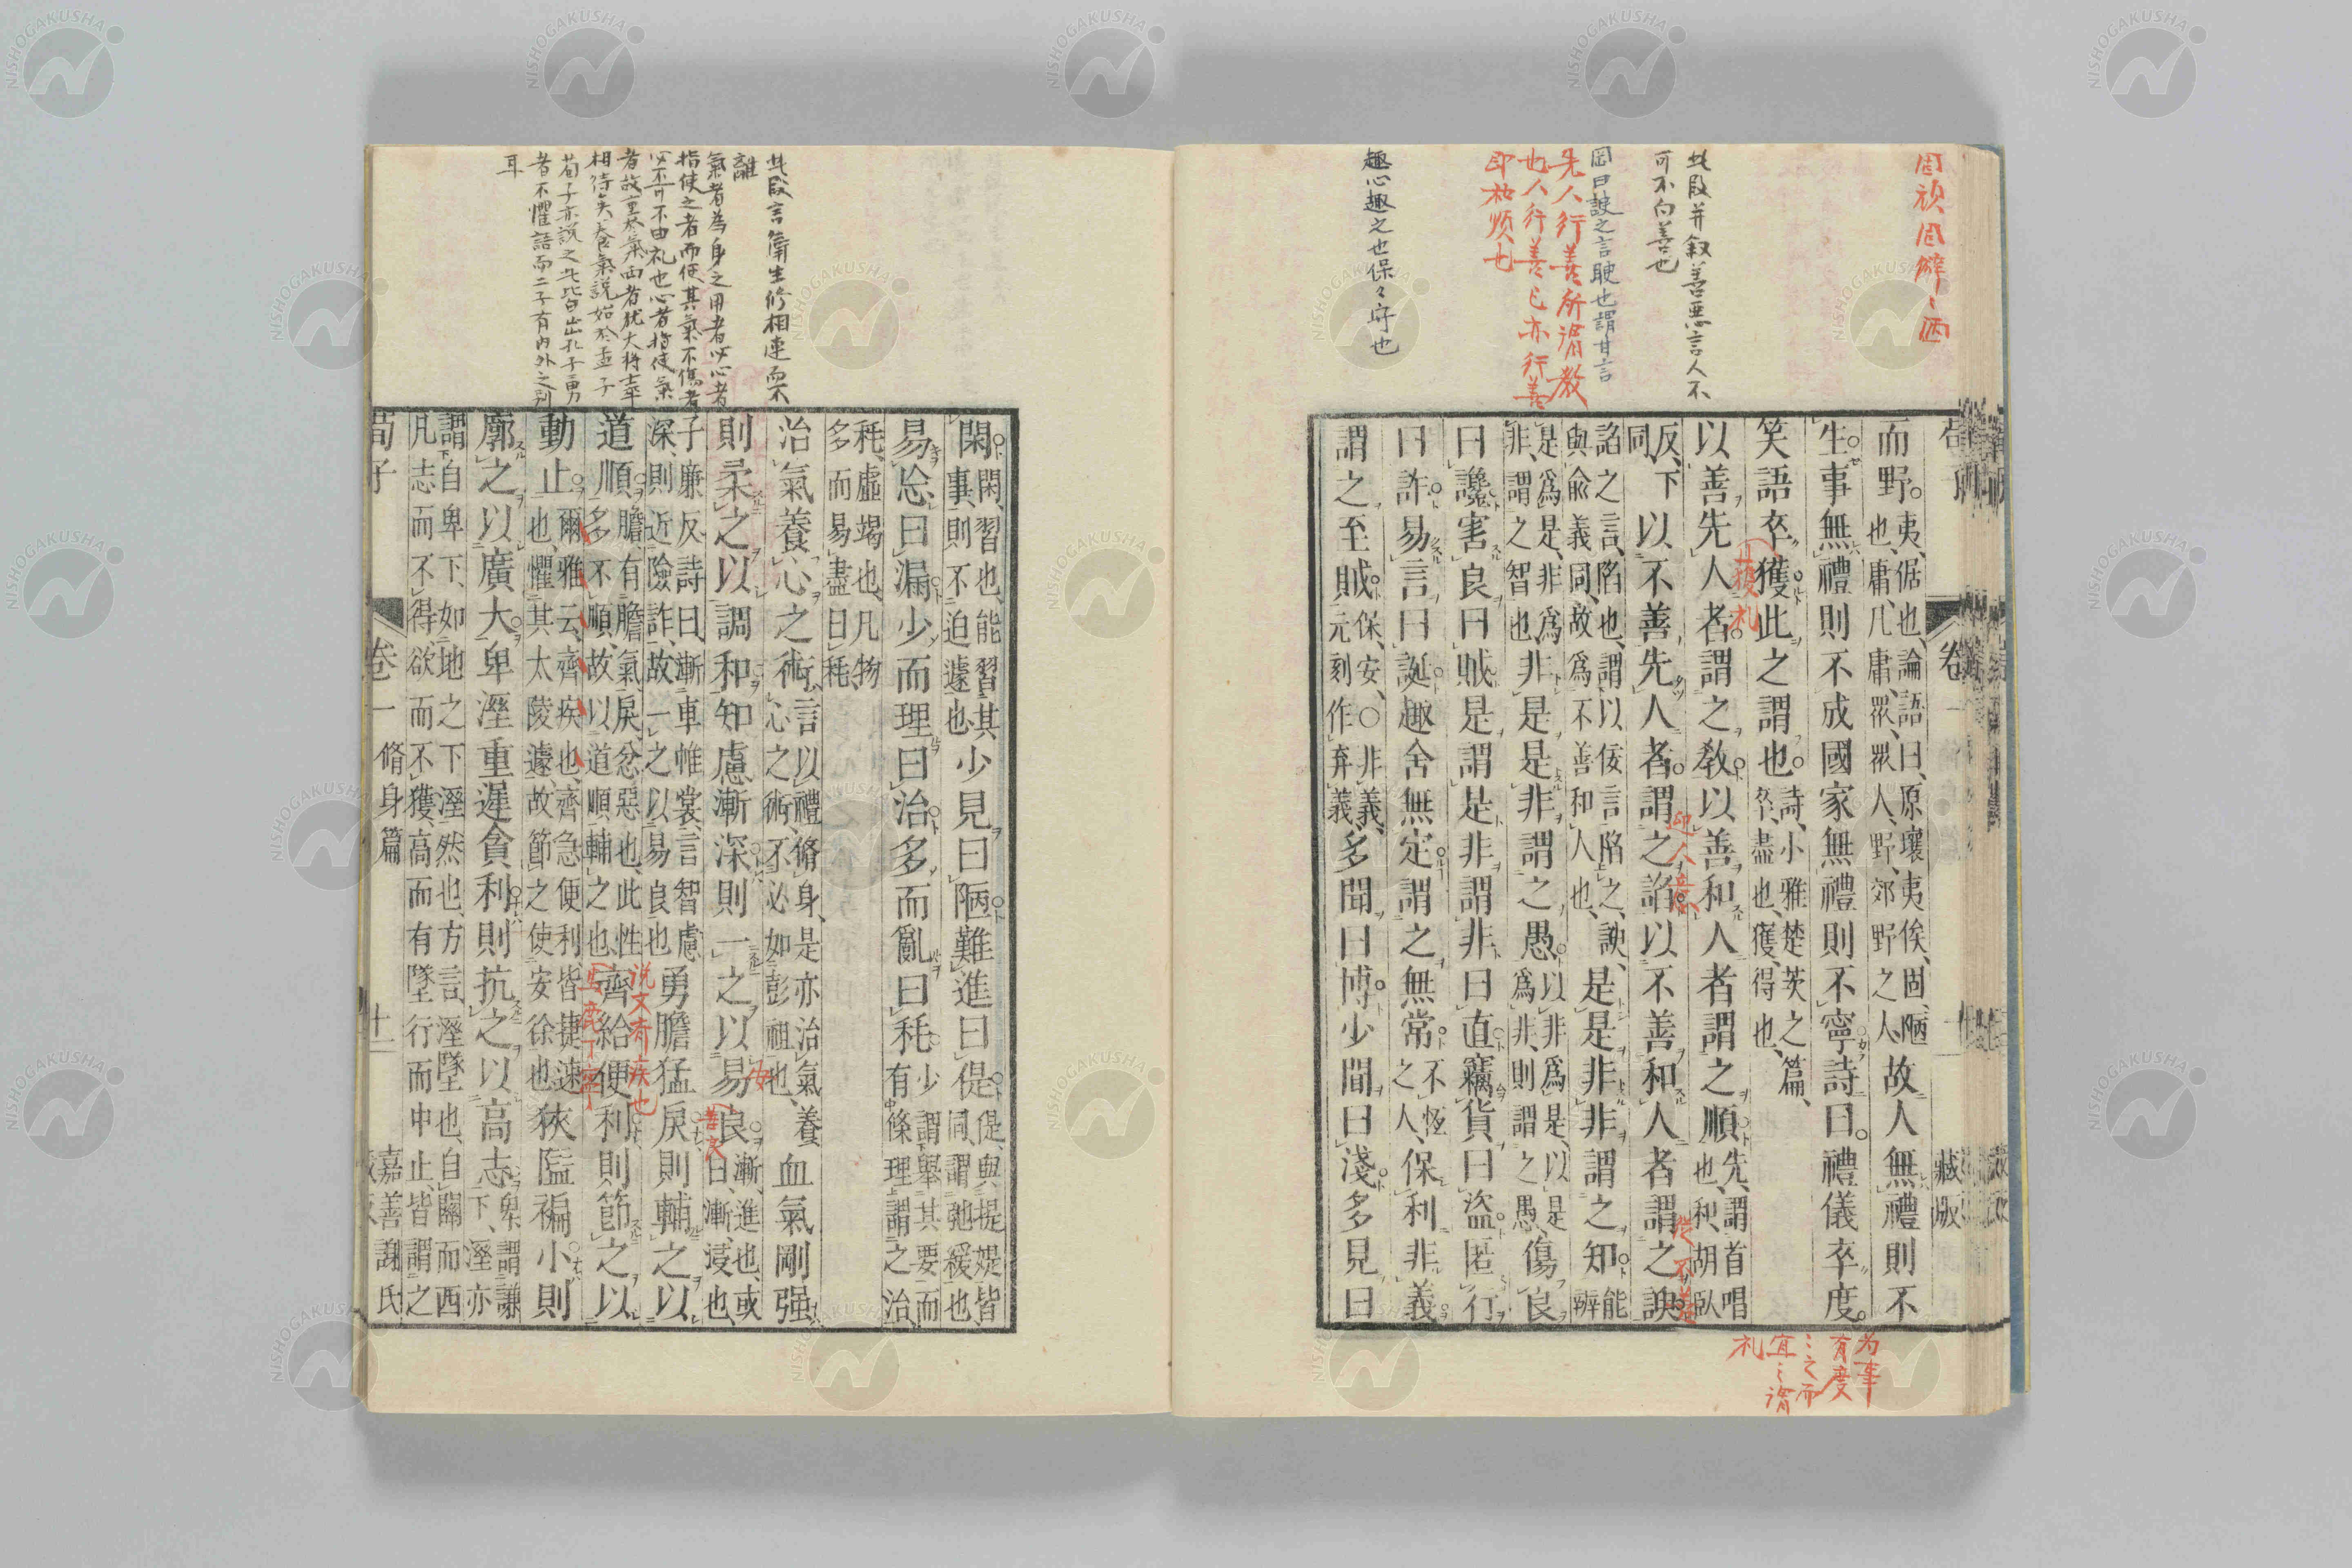 固頑固僻〻陋
此段并叙善惡言人不
可不向善也
岡曰諛之言諛也謂甘言
先人行善所謂教
也人行善已亦行善
即和順也
趣心趣之也保〻守也
而野夷、倨也、論語曰、原壤夷俟、固、陋
也、庸、凡庸、眾、眾人、野、郊野之人故人無禮則不
生事無禮則不成國家無禮則不寧詩曰禮儀卒度
笑語卒獲此之謂也詩、小雅楚茨之篇、
卒、盡也、獲、得也、
以善先人者謂之教以善和人者謂之順先、謂首唱
也、和、胡臥
反、下
同以不善先人者謂之諂以不善和人者謂之諛
諂之言、陷也、謂以佞言陷之、諛、
與俞義同、故為不善和人也、是是非非謂之知能
辨
是為是、非為
非、謂之智也、非是是非謂之愚以非為是、以是
為非、則謂之愚、傷良
曰讒害良曰賊是謂是非謂非曰直竊貨曰盜匿行
曰詐易言曰誕趣舍無定謂之無常不恆
之人、保利非義
謂之至賊保、安、〇非義、
元刻作弃義、多聞曰博少聞曰淺多見曰
藏版
上授礼
迎人意
從不善
为事
有度
〻之而
宜〻謂
礼
此段言衛生修相連而不
離
氣者為身之用者以心者
指使之者而使其氣不傷者
必不可不由礼也心者將使氣
者故主於氣两者犹大將士卒
相待矣養氣説始於孟子
荀子亦説之此皆出孔子勇
者不懼語而二子有内外之別
耳
閑閑、習也、能習其
事、則不迫遽也少見曰陋難進曰偍偍、與提媞皆
同、謂弛緩也
易忘曰漏少而理曰治多而亂曰秏少謂舉其要而
有條理謂之治
秏、虛竭也、凡物
多而易盡曰秏、
治氣養心之術言以禮脩身、是亦治氣養
心之術、不必如彭祖也、血氣剛强
則柔之以調和知慮漸深則一之以易良漸、進也、或
曰、漸、浸也、
子廉反、詩曰、漸車帷裳、言智慮
深、則近險詐、故一之以易良也勇膽猛戾則輔之以
道順膽、有膽氣、戾、忿惡也、此性
多不順、故以道順輔之也、齊給便利則節之以
動止爾雅云、齊、疾也、齊急便利、皆捷速
也、懼其太陵遽、故節之使安徐也狹隘褊小則
廓之以廣大卑溼重遲貪利則抗之以高志卑、謂謙
下、溼、亦
謂自卑下、如地之下溼然也、方言、溼、墜也、自關而西
凡志而不得、欲而不獲、高而有墜、行而中止、皆謂之
荀子
卷一
脩身篇
十一
嘉善謝氏
説文有疾也
善文